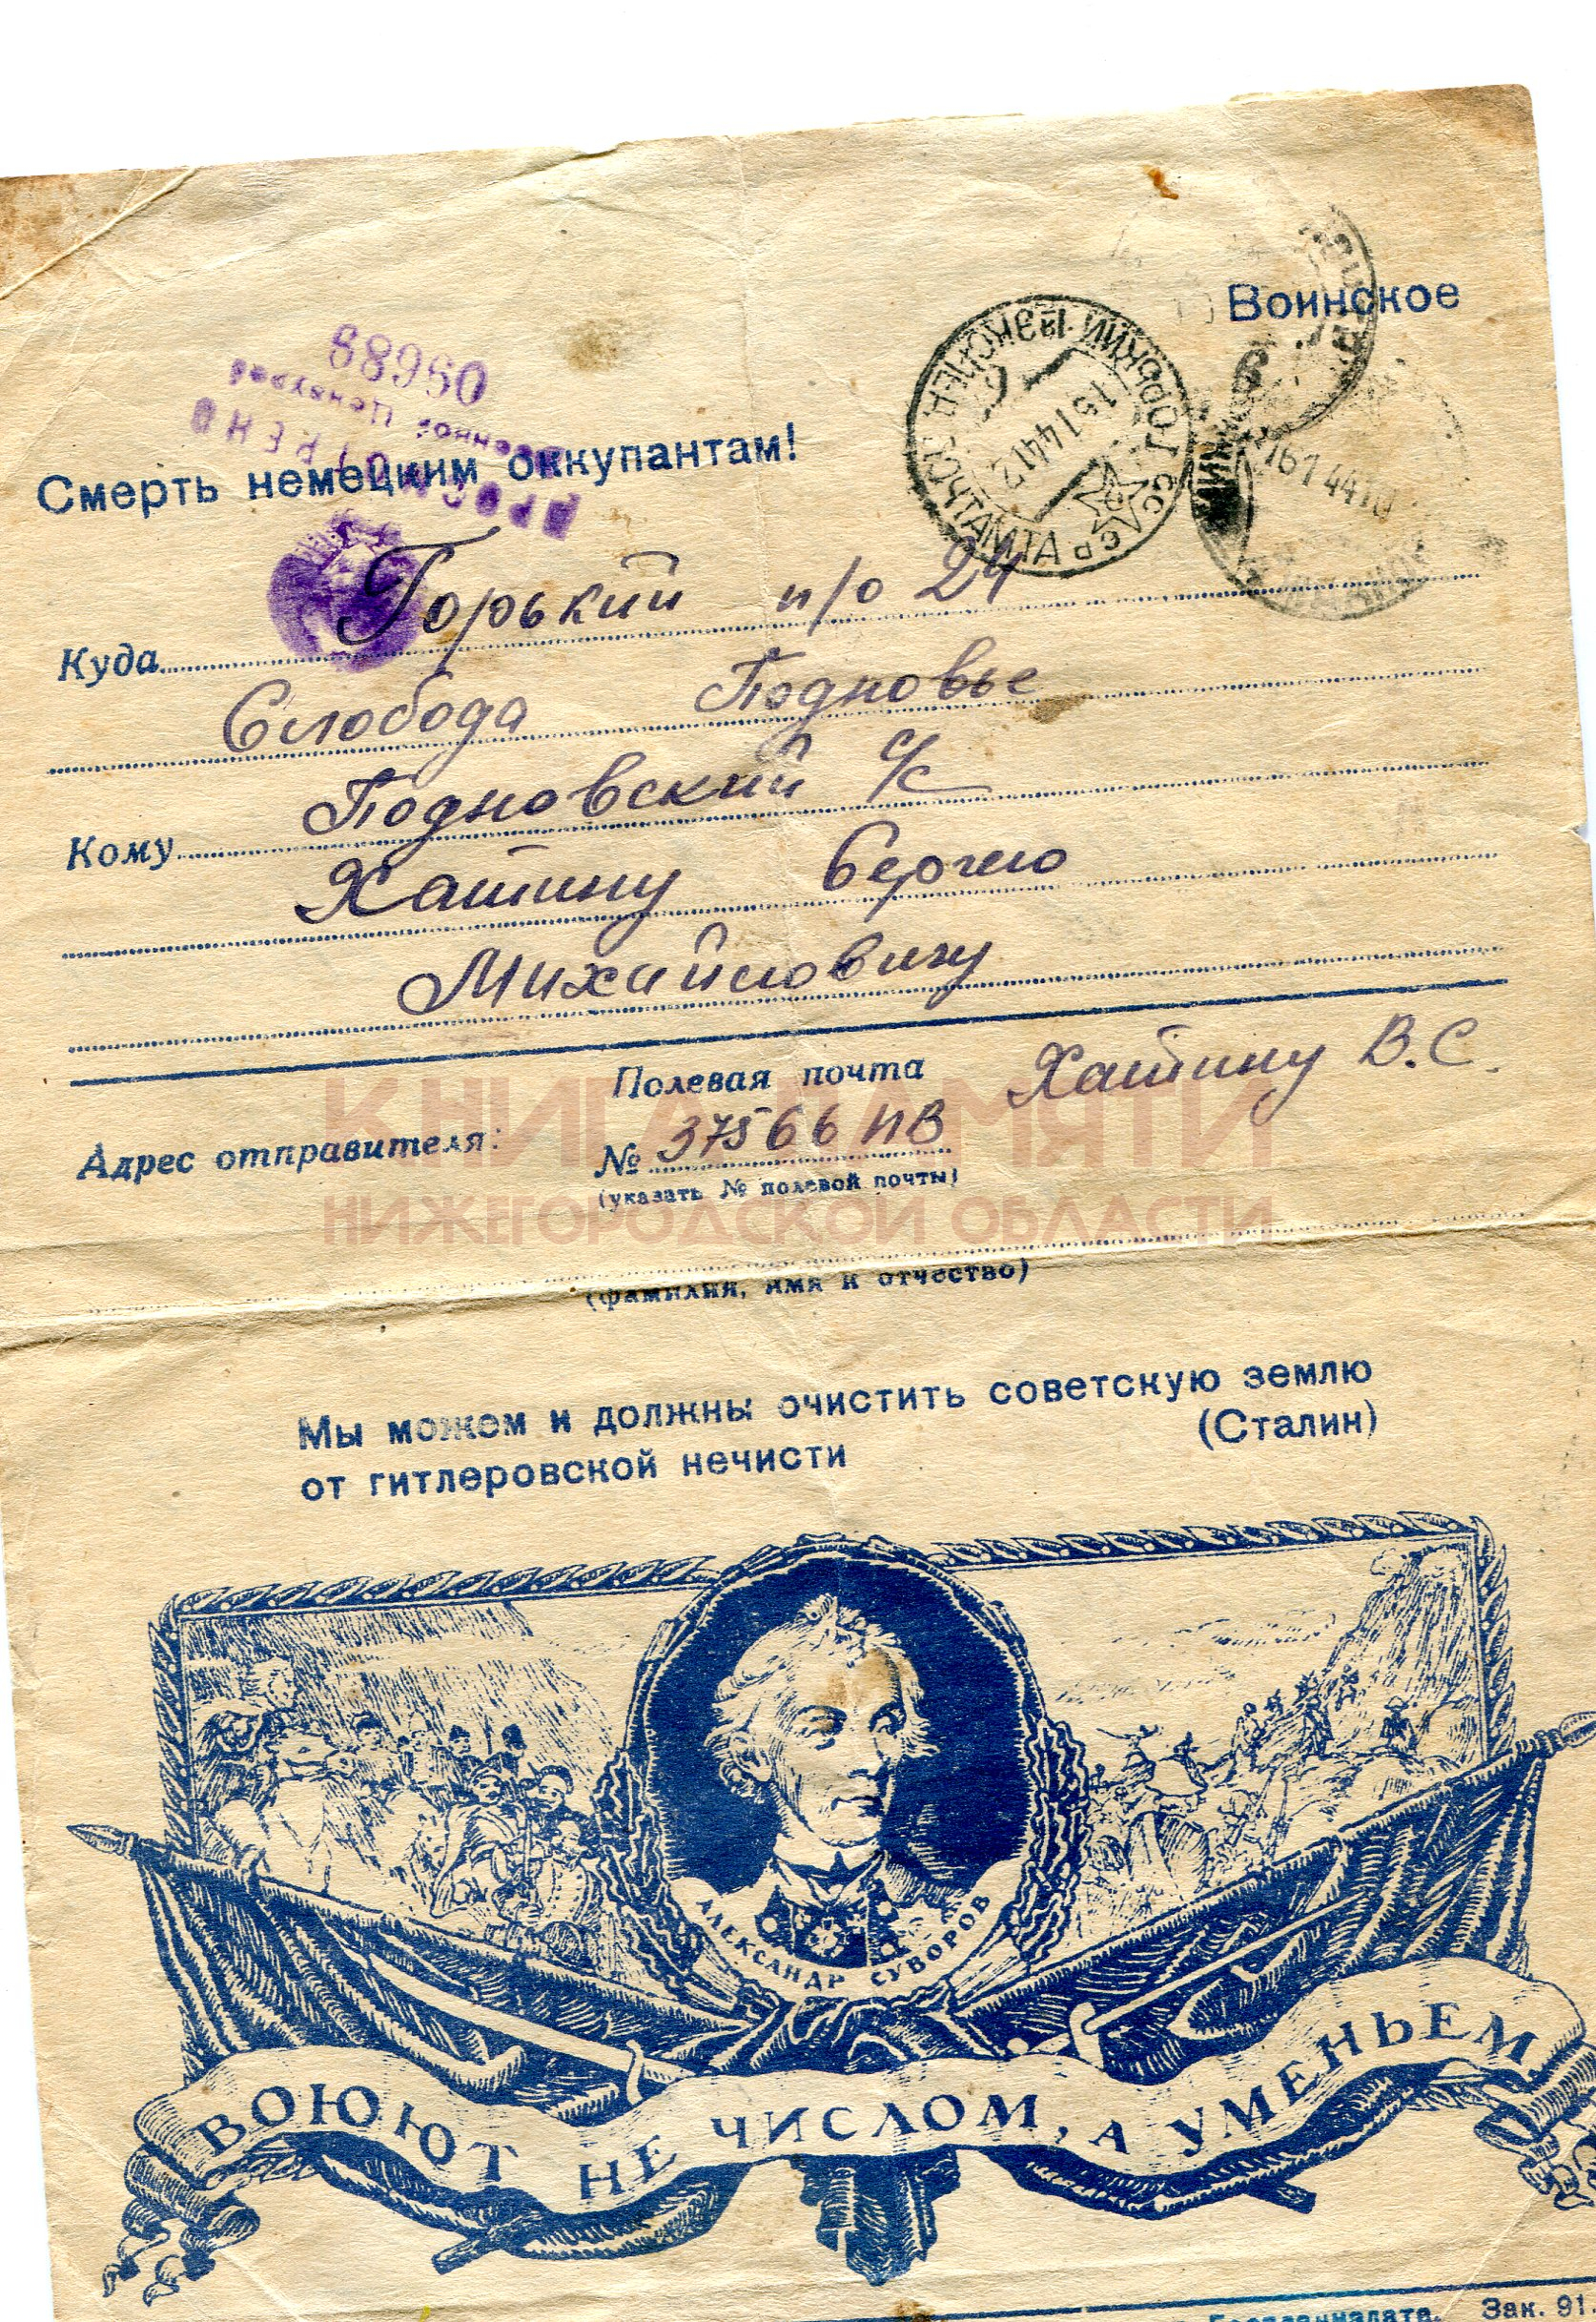 Воинское
Смерть немецким оккупантам!
ПРОСМОТРЕНО
Военной Цензурой
05688
ГОРЬКИЙ 1й ЭКСПЕД. ПОЧТАМТА
СССР
15 1 44 12
16 1 44 10
Куда Горький п/о 24
Слобода Подновье
Подновский с/с
Кому
Хатину Сергею
Михайловичу
Полевая почта Хатину В.С.
Адрес отправителя: № 37566 ПВ
(указать № полевой почты)
КНИГА ПАМЯТИ
НИЖЕГОРОДСКОЙ ОБЛАСТИ
(фамилия, имя и отчество)
Мы можем и должны очистить советскую землю
от гитлеровской нечисти (Сталин)
АЛЕКСАНДР СУВОРОВ
ВОЮЮТ НЕ ЧИСЛОМ, А УМЕНЬЕМ.
Зак. 91